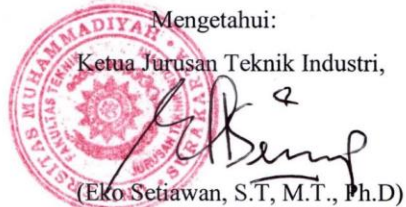 Mengetahui:
Ketua Jurusan Teknik Industri,
(Eko Setiawan, S.T, M.T., Ph.D)